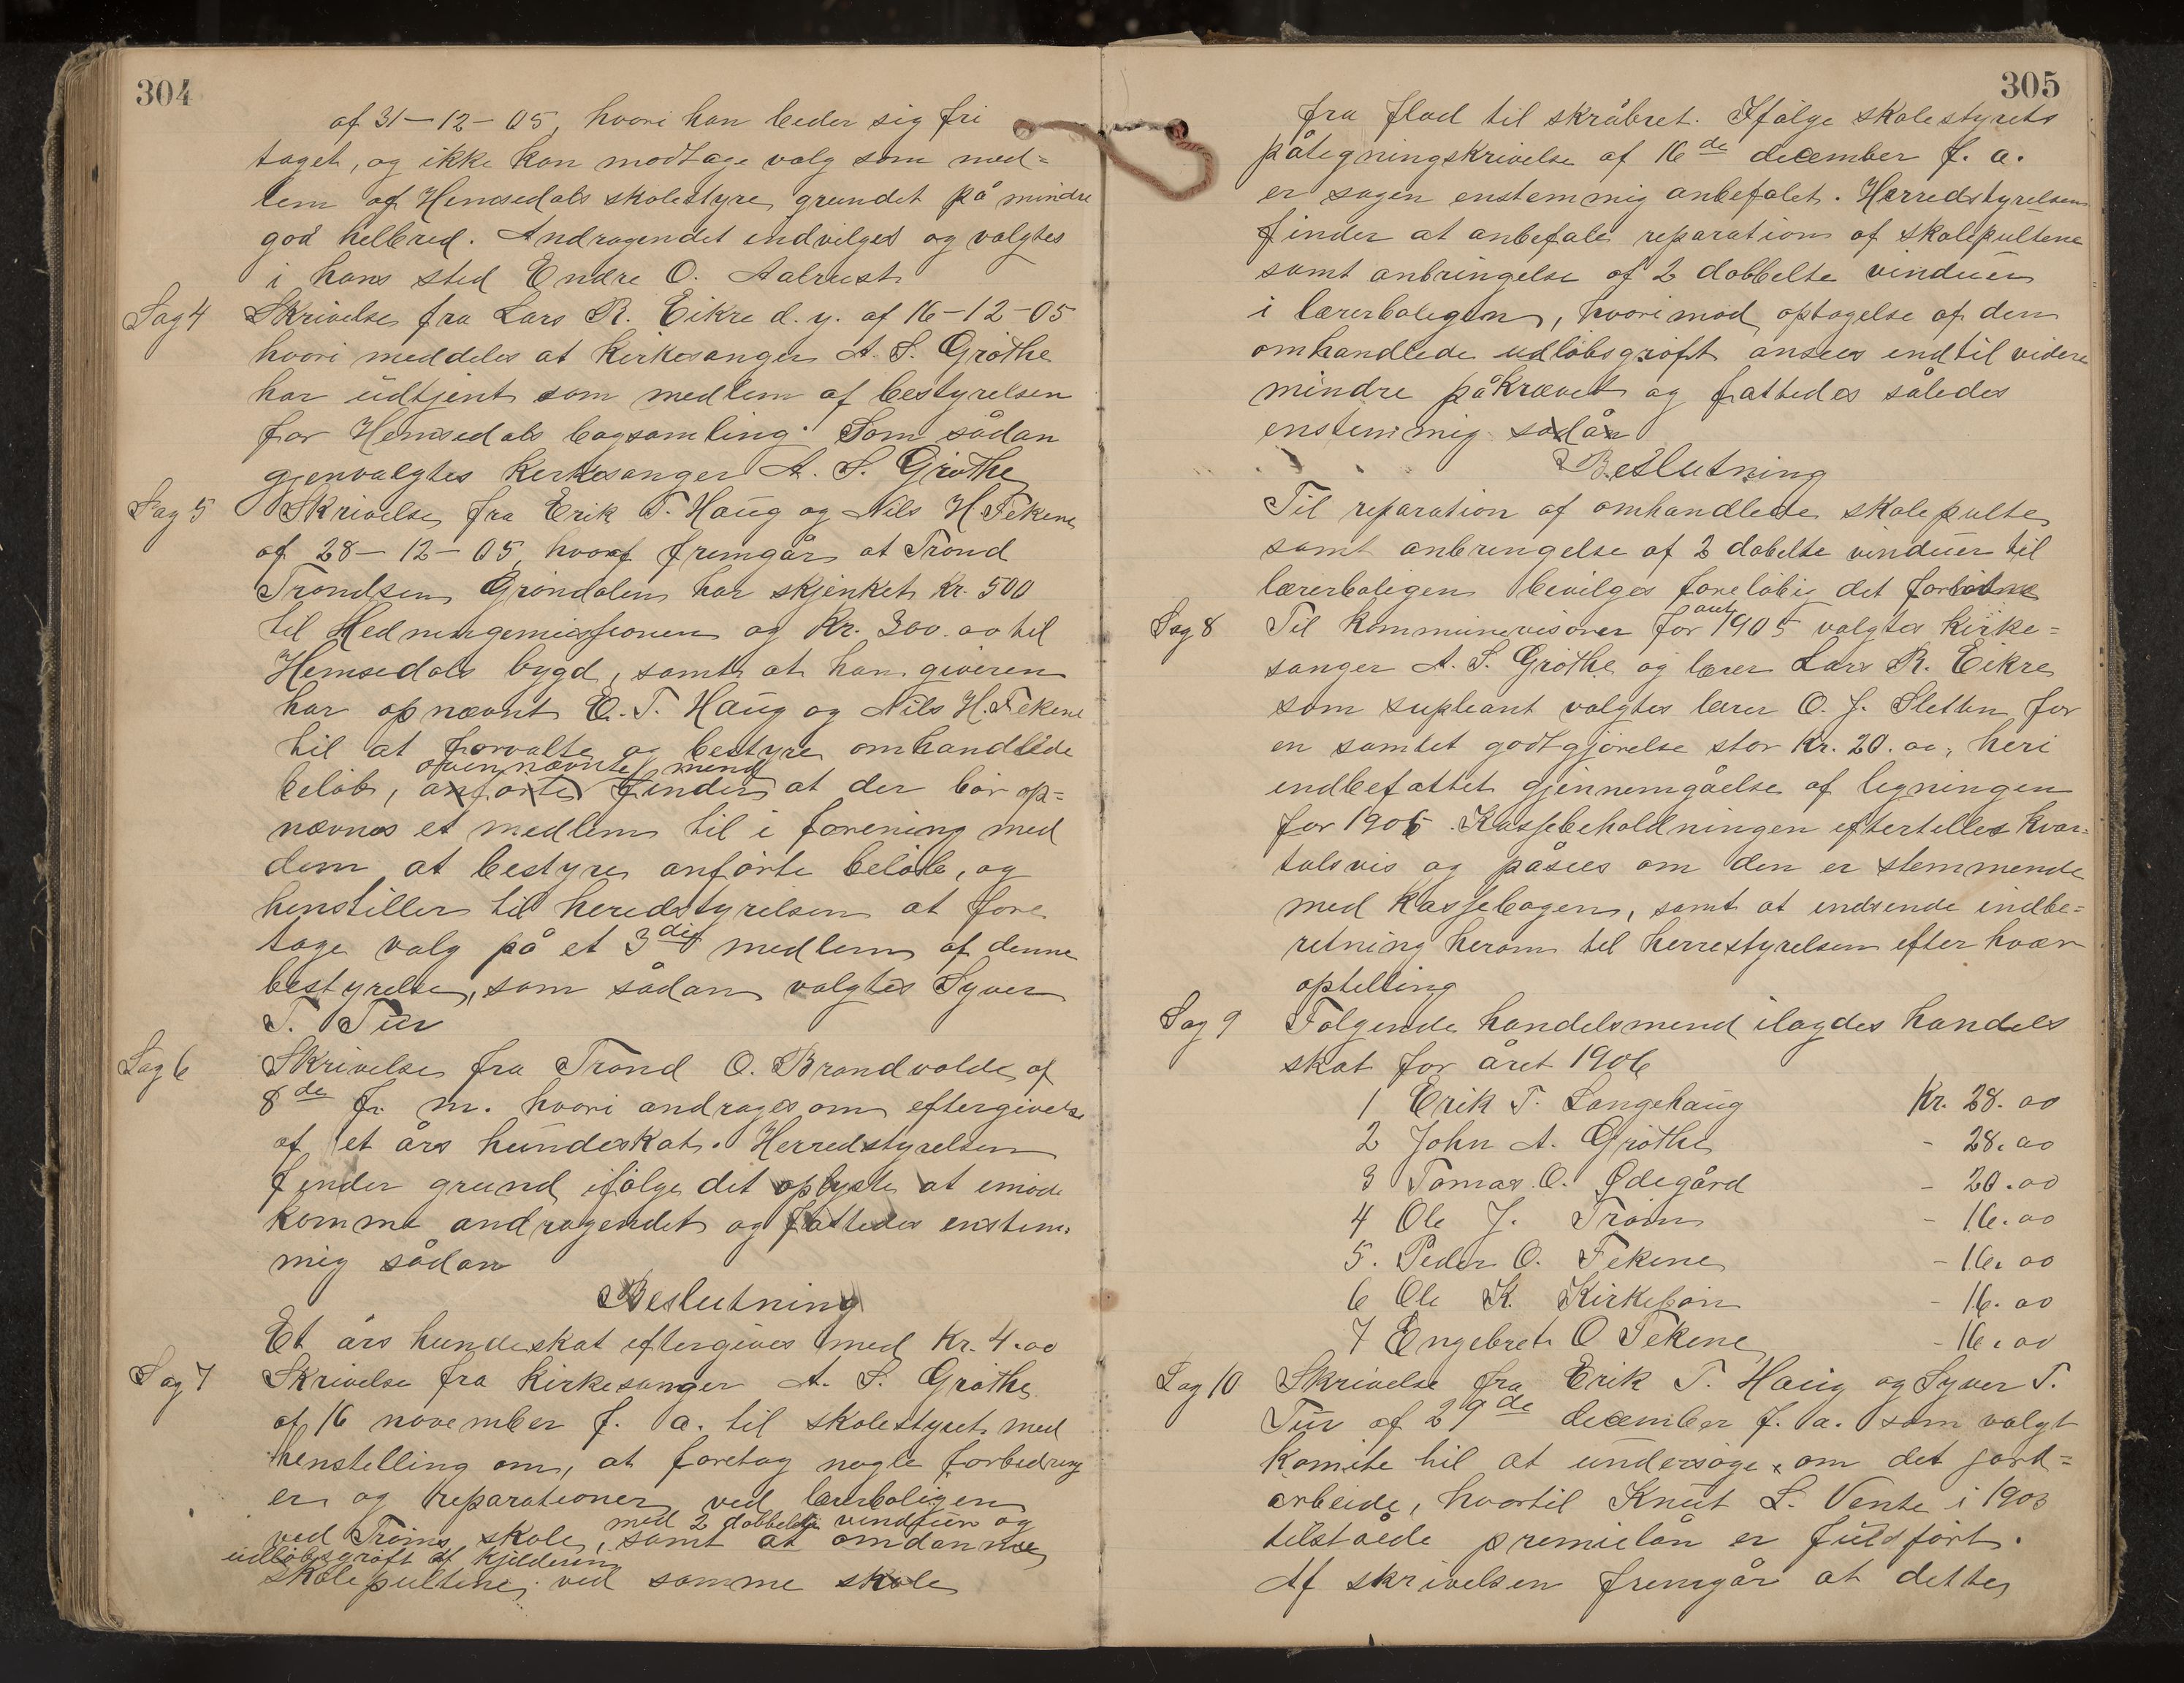 304
af 31-12-05, hvori han beder sig fri
taget, og ikke kan modtage valg som med=
lem af Hemsedals skolestyre, grundet på mindre
god helbred. Andragendet indvilges og valgtes
i hans sted Endre O. Aalrust
Sag 4 Skrivelse fra Lars R. Eikre d. y. af 16-12-05
hvori meddeles at kirkesanger A. S. Grøthe
har udtjent som medlem af bestyrelsen
for Hemsedals bogsamling. Som sådan
gjenvalgtes kirkesanger A. S. Grøthe
Sag 5 Skrivelse fra Erik T. Haug og Nils H. Fekene
af 28-12-05, hvoraf fremgår at Trond
Trondsen Grøndalen har skjenket kr. 500
til Hedningemissionen og kr. 300.00 til
Hemsedals bygd, samt at han giveren
har opnævnt E. T. Haug og Nils H. Fekene
til at forvalte og bestyre omhandlede
ovennævnte mend
beløb, anførte finder at der bør op=
nævnes et medlem til i forening med
dem at bestyre anførte beløb, og
henstiller til heredstyrelsen at fore
tage valg på et 3die medlem af denne
bestyrelse, som sådan valgtes Syver
T. Tuv
Sag 6 Skrivelse fra Trond O. Brandvolde, af
8de f. m. hvori andrages om eftergivelse
af et års hundeskat. Herredstyrelsen
finder grund ifølge det oplyste at imøde
komme andragendet og fattedes enstem.
mig sådan
Beslutning
Et års hundeskat eftergives med kr. 4.00
Sag 7 Skrivelse fra kirkesanger A. S. Grøthe
af 16 november f. a. til skolestyret med
henstilling om, at foretag nogle forbedring
er og reparationer ved lærerboligen
med 2 dobbelte vinduer og
ved Trøims skole, samt at omdanne
udløbsgrøft af kjelderen
skolepultene ved samme skole
305
fra flad til skråbret. Ifølge skolestyrets
påtegningskrivelse af 16de december f. a.
er sagen enstemmig anbefalet. Herredstyrelsen
finder at anbefale reparation af skolepultene
samt anbringelse af 2 dobbelte vinduer
i lærerboligen, hvorimod optagelse af den
omhandlede udløbsgrøft ansees indtil videre
mindre påkrævet og fattedes således
enstemmig sådan
Beslutning
Til reparation af omhandlede skolepulte
samt anbringelse af 2 dobelte vinduer til
lærerboligen bevilges foreløbig det fornødne
Sag 8 Til kommunevisorer for 1905 valgtes kirke=
sanger A. S. Grøthe og lærer Lars R. Eikre
som supleant valgtes lærer O. J. Sletten for
en samlet godtgjørelse stor kr. 20.00, heri
indbefattet gjennemgåelse af ligningen
for 1906. Kassebeholdningen eftertelles kvar=
talsvis og påsees om den er stemmende
med kassebogen, samt at indsende indbe=
retning herom til herrestyrelsen efter hvær
optelling
Sag 9 Følgende handelsmend ilagdes handels
skat for året 1906
1 Erik T. Langehaug Kr. 28.00
2 John A. Grøthe - 28.00
3 Tomas O. Ødegård - 20.00
4 Ole J. Trøim - 16.00
5. Peder O. Fekene - 16.00
6 Ole K. Kirkebøn - 16.00
7 Engebret O Fekene - 16.00
Sag 10 Skrivelse fra Erik T. Haug og Syver T.
Tuv af 29de december f. a. som valgt
komite til at undersøge om det jord=
arbeide, hvortil Knut L. Vente i 1903
tilståede premielån er fuldført.
Af skrivelsen fremgår at dette